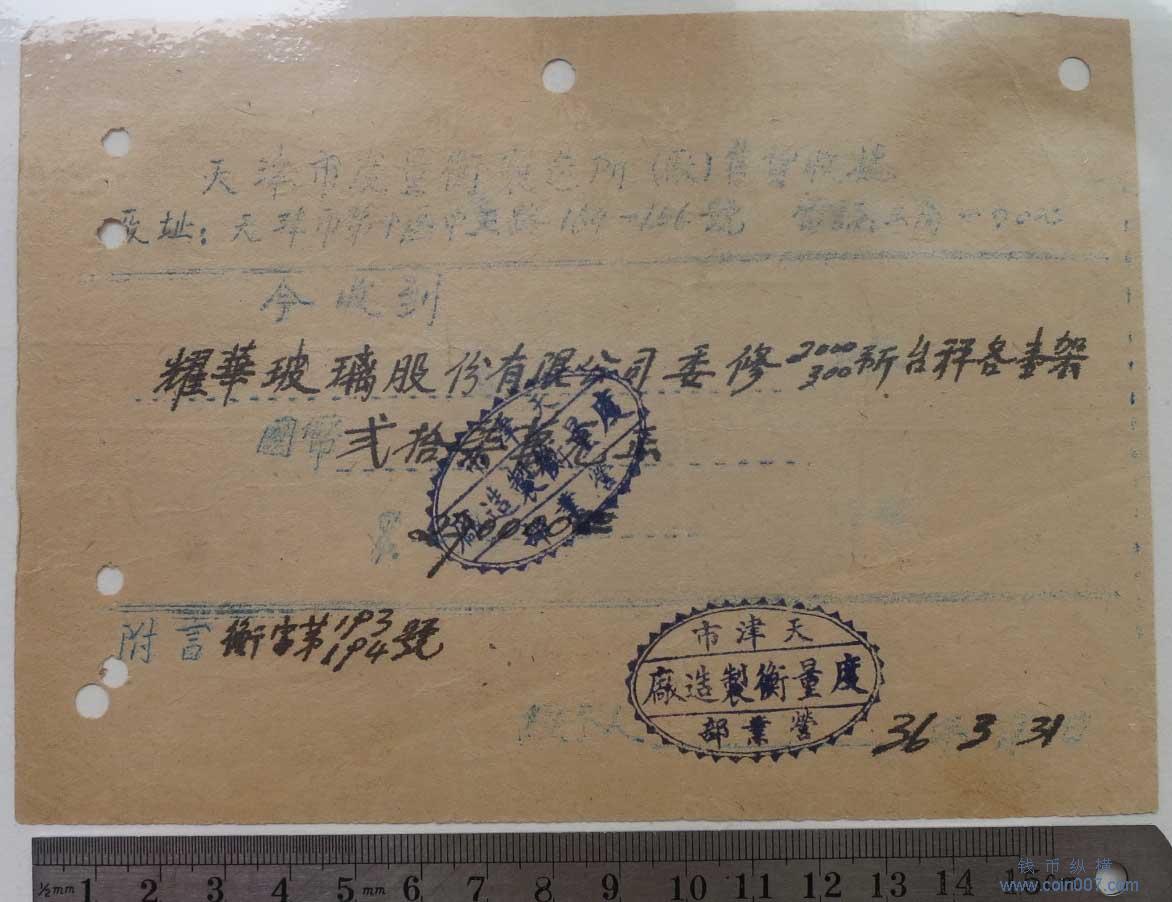 天津市度量衡製造所(廠)售貨收據
廠址：天津市第十區中 路 號 電話三局一
今收到
耀華玻璃股份有限公司委修2000 300 斤台秤各壹架
國幣弍拾柒萬元正
天津市
度量衡製造廠
營業部
附言 衡字第193 194號
天津市
度量衡製造廠
營業部
36 3 31
½mm 1 2 3 4 5 mm 6 7 8 9 10 11 12 13 14 15cm
钱币纵横
www.coin007.com